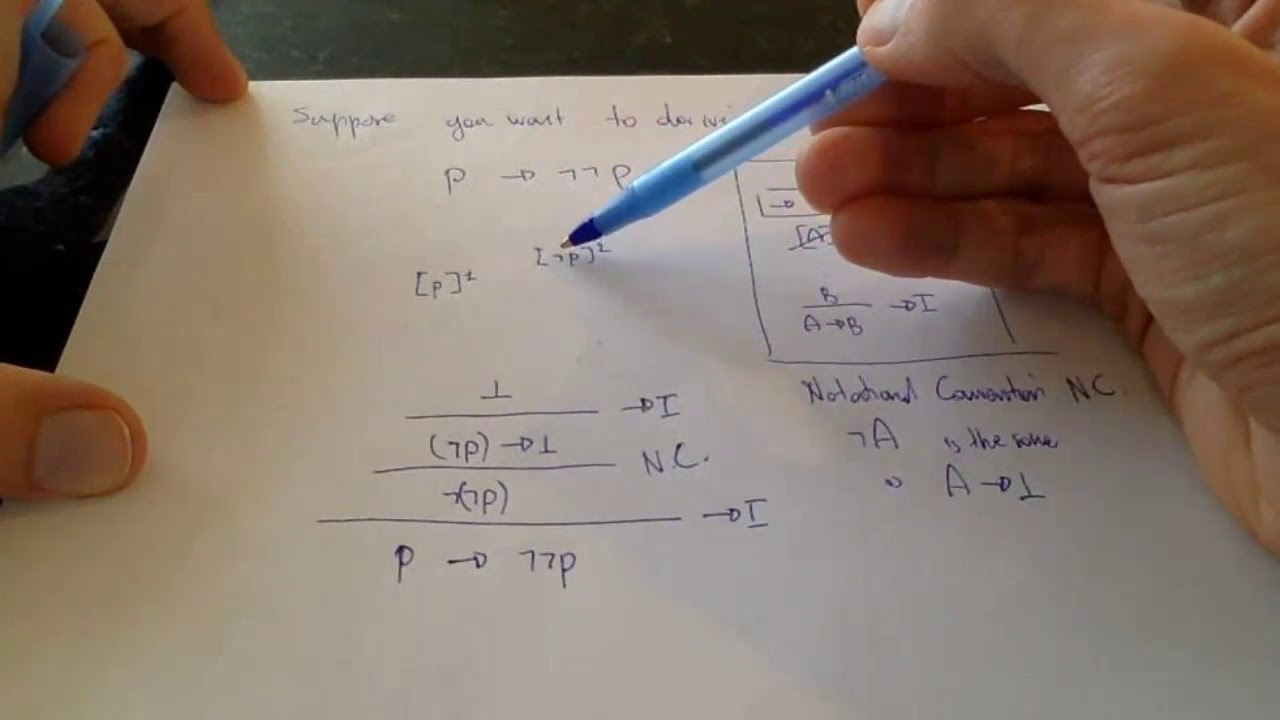 Suppose you want to deriv
P → ¬¬P
[¬P]²
[P]¹
→
[A]
B
A→B →I
⊥
→I
(¬P) →⊥
N.C.
¬(¬P)
→I
P → ¬¬P
Notational Convention NC.
¬A is the same
A→⊥